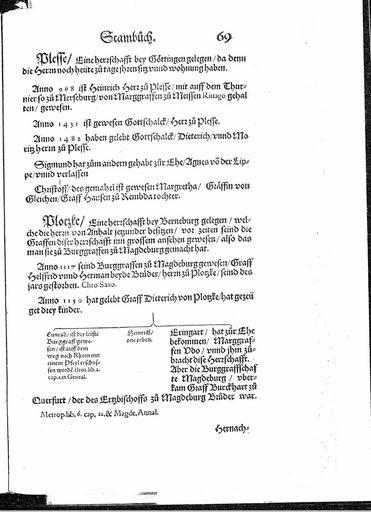 Stambůch. 69
Plesse/ Eine herrschafft bey Göttingen gelegen/ da denn
die Herrn noch heůte zu tage jhren sitz vnnd wohnung haben.
Anno 968 ist Heinrich Herr zu Plesse/ mit auff dem Thur-
nier so zu Merseburg/ von Marggraffen zu Meissen Ritago gehal
ten/ gewesen.
Anno 1431 ist gewesen Gottschalck/ Herr zu Plesse.
Anno 1482 haben gelebt Gottschalck/ Dieterich/ vnnd Mo
ritz herrn zu Plesse.
Sigmund hat zům andern gehabt zur Ehe/ Agnes võ der Lip-
pe/ vnnd verlassen
Christoff/ des gemahel ist gewesen Margretha/ Gräffin von
Gleichen/ Graff Hansen zu Rembda tochter.
Plotzke/ Eine herrschafft bey Berneburg gelegen/ wel-
che die herrn von Anhalt jetzunder besitzen/ vor zeiten seind die
Graffen diser herrschafft inn grossem ansehen gewesen/ also das
man sie zu Burggraffen zu Magdeburg gemacht hat.
Anno 1117 seind Burggraffen zu Magdeburg gewesen/ Graff
Helffrid vnnd Herman beyde Brůder/ herrn zu Plotzke/ seind des
jars gestorben. Chro. Saxo.
Anno 1150 hat gelebt Graff Dieterich von Plotzke/ hat gezeů
get drey kinder.
Cunrad/ ist der letste
Burggraff gewe-
sen/ ist auff dem
weg nach Rhom mit
einem Pfeyl erschos-
sen
Heinrich/
one erben.
Eringart/ hat zůr Ehe
bekommen/ Marggraf-
fen Vdo/ vnnd jhm zů-
bracht dise Herrschafft.
Aber die Burggraffschaf
te Magdeburg/ vber-
kam Graff Burckhart zů
Querfurt/ der des Ertzbischoffs zů Magdeburg Brůder war.
Metrop. lib. 6. cap. 22. & Magde. Annal.
Hernach-